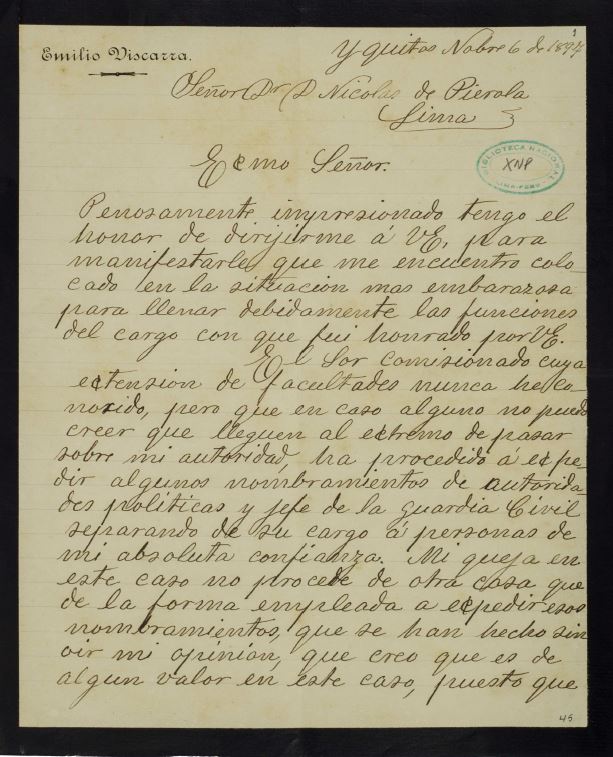 1
Emilio Viscarra.
Yquitos Nobre 6 de 1897
Señor Dr D Nicolas de Pierola
Lima
BIBLIOTECA NACIONAL
XNP
LIMA-PERU
Ecmo Señor.
Penosamente impresionado tengo el
honor de dirijirme á VE, para
manifestarle que me encuentro colo
cado en la situación mas embarazosa
para llenar debidamente las funciones
del cargo con que fui honrado por VE.
El Sor comisionado cuya
extension de facultades nunca he co-
nocido, pero que en caso alguno no puedo
creer que lleguen al extremo de pasar
sobre mi autoridad, ha procedido á expe-
dir algunos nombramientos de autorida-
des politicas y jefe de la guardia Civil
separando de su cargo á personas de
mi absoluta confianza. Mi queja en
este caso no procede de otra cosa que
de la forma empleada a expedir esos
nombramientos, que se han hecho sin
oir mi opinión, que creo que es de
algun valor en este caso, puesto que
45